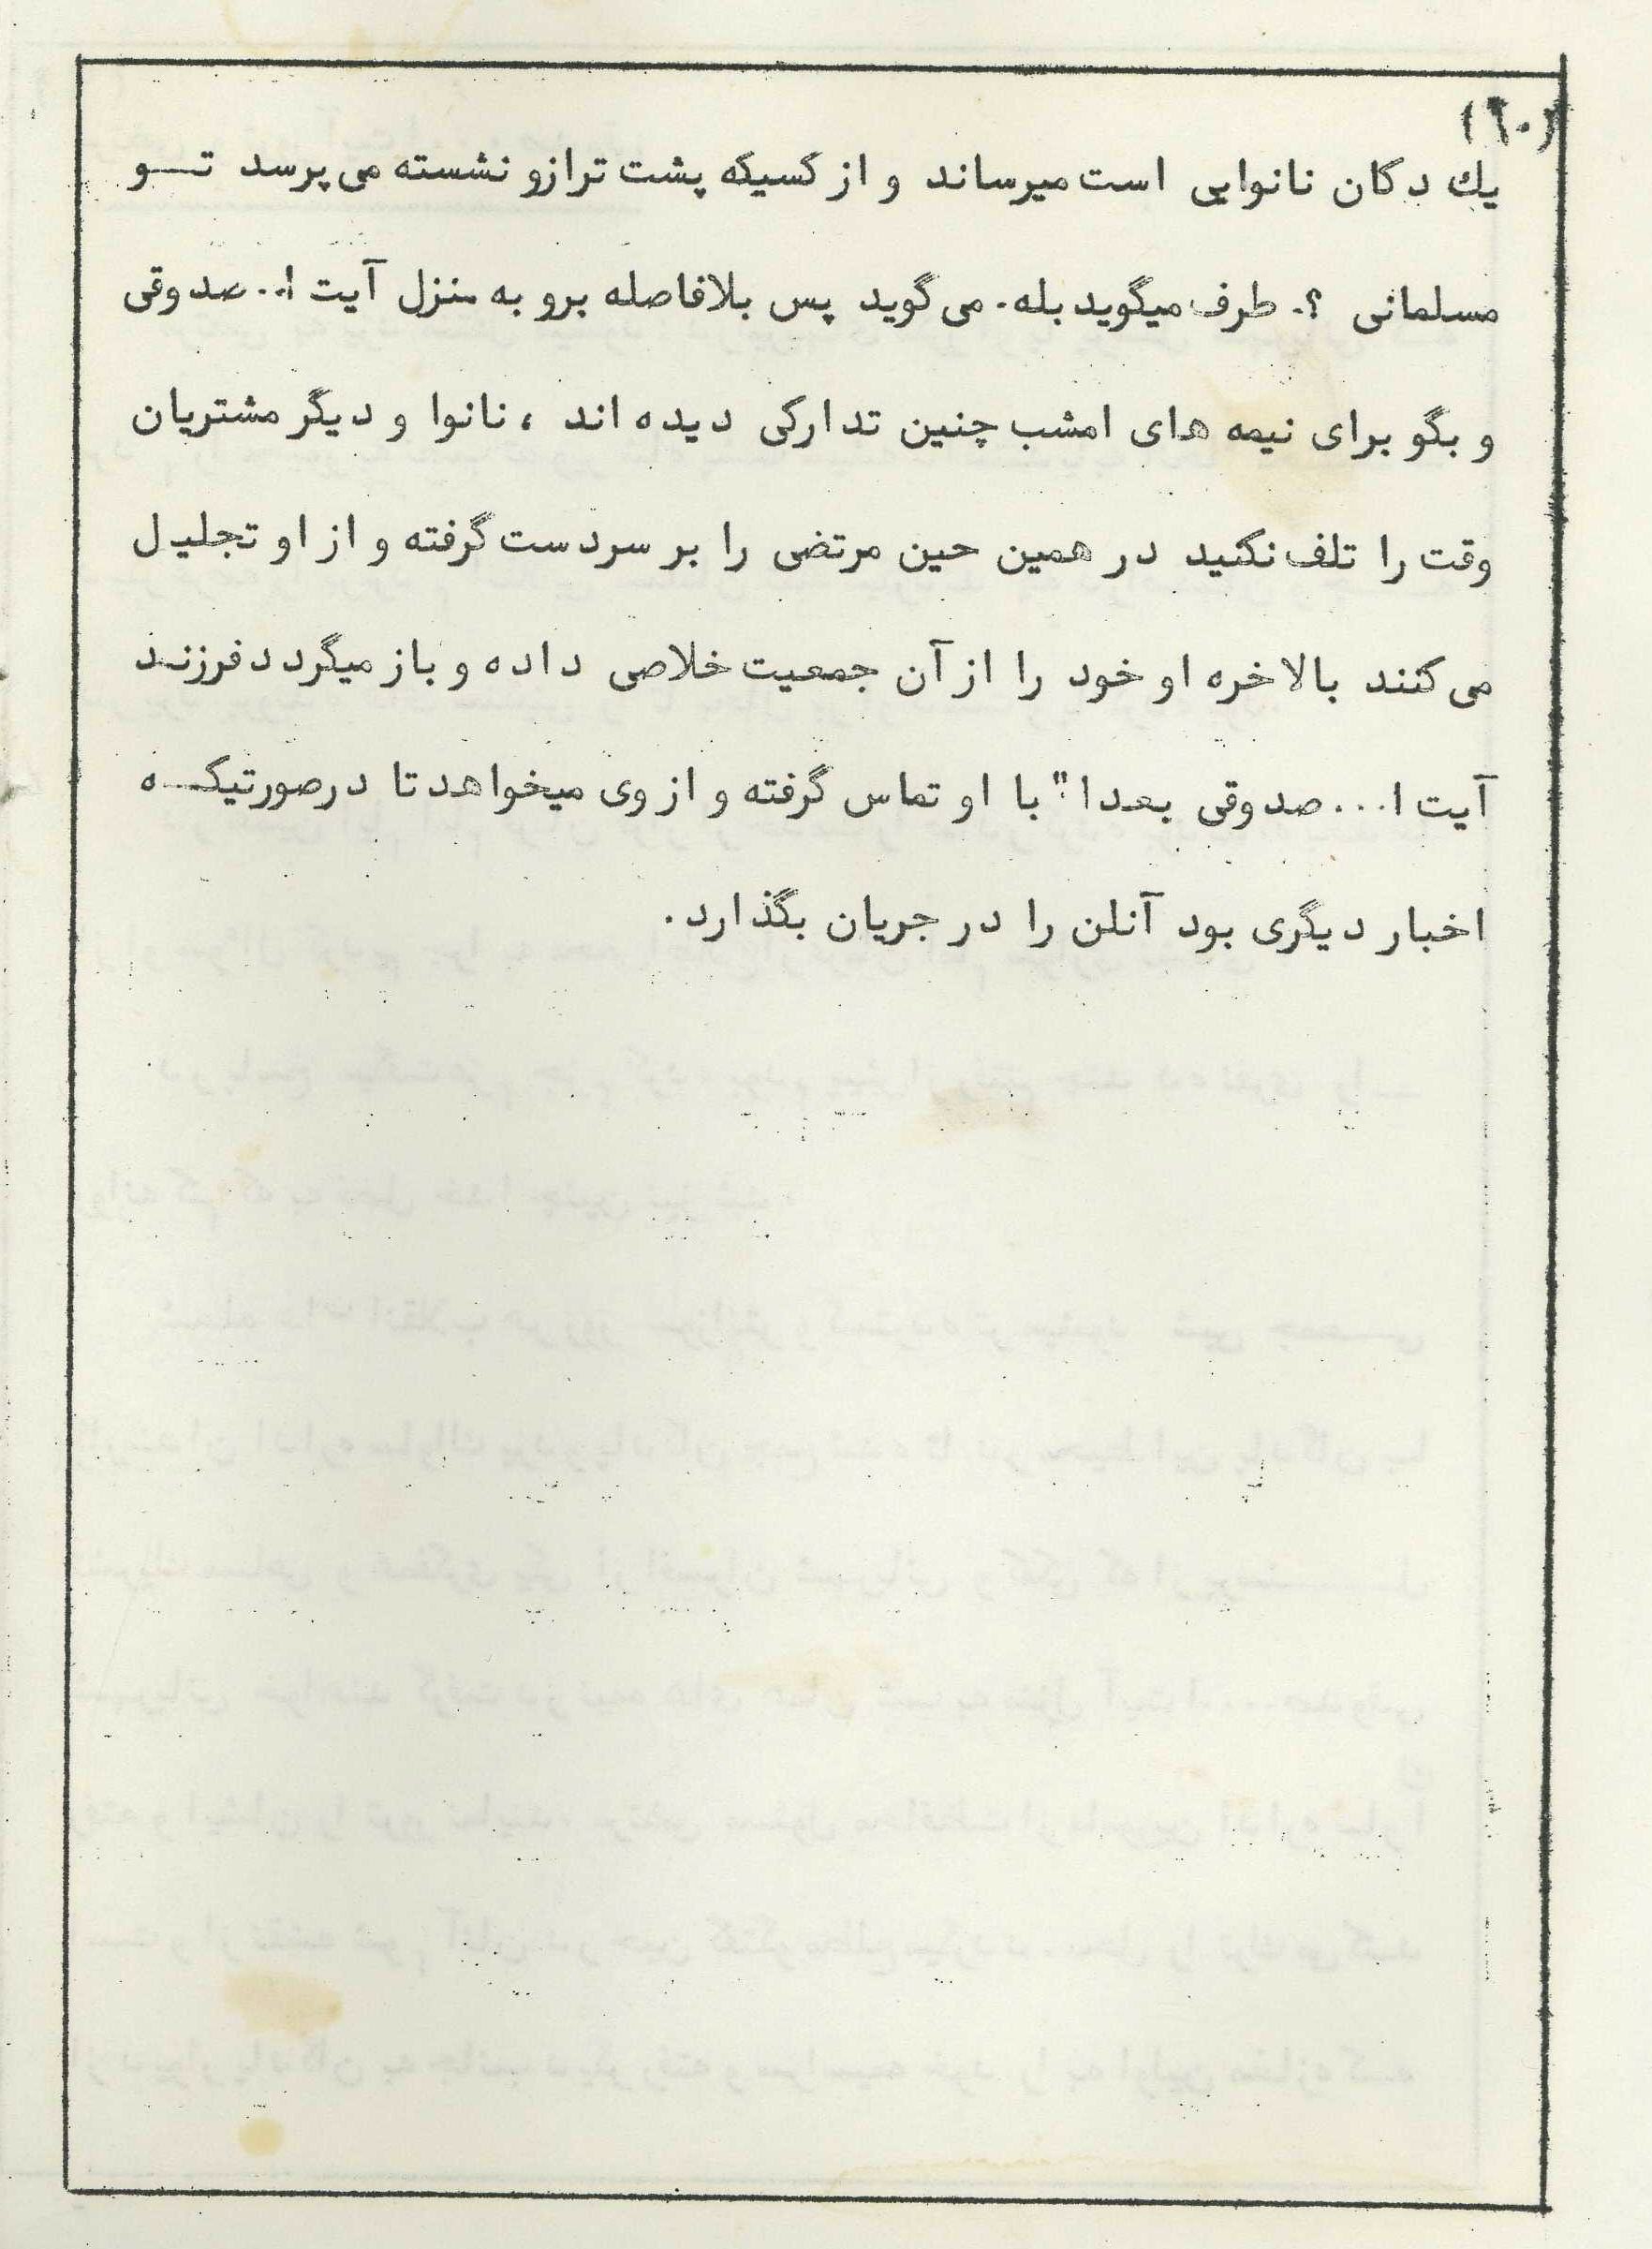 (٦٠)
یك دکان نانوایی است میرساند و از کسیکه پشت ترازو نشسته می پرسد تــو
مسلمانی ؟. طرف میگوید بله. می گوید پس بلافاصله برو به منزل آیت ا.. صدوقی
و بگو برای نیمه های امشب چنین تدارکی دیده اند ، نانوا و دیگر مشتریان
وقت را تلف نکنید در همین حین مرتضی را بر سردست گرفته و از او تجلیل
می کنند بالاخره او خود را از آن جمعیت خلاصی داده و باز میگردد فرزنـد
آیت ا... صدوقی بعدا" با او تماس گرفته و از وی میخواهد تا درصورتیکـه
اخبار دیگری بود آنلن را در جریان بگذارد.